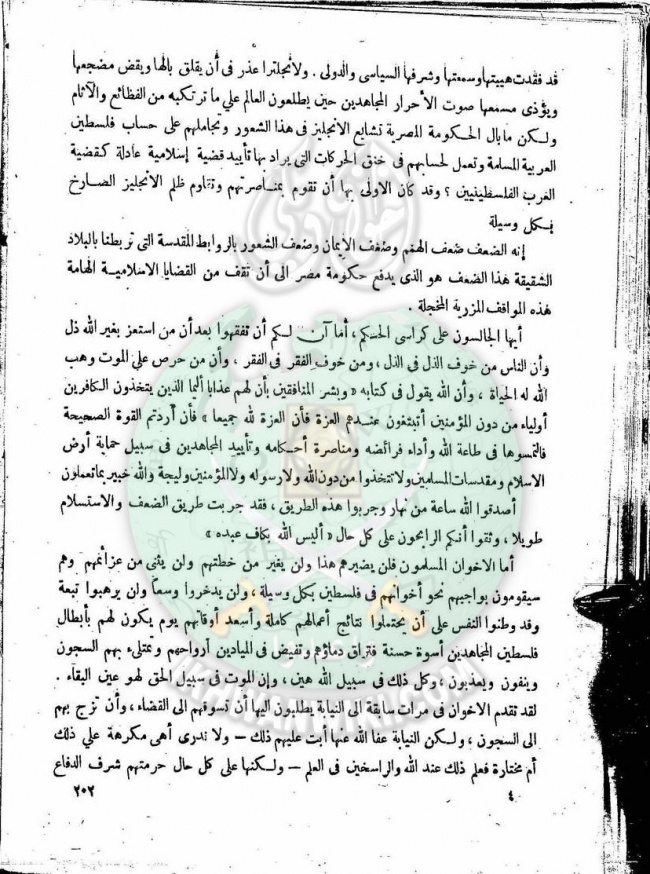 قد فقدت هيبتها وسمعتها وشرفها السياسى والدولى . ولانجلترا عذر فى أن يقلق بالها ويقض مضجعها
ويؤذى مسمعها صوت الأحرار المجاهدين حين يطلعون العالم علي ما ترتكبه من الفظائع والآثام
ولكن مابال الحكومة المصرية تشايع الانجليز فى هذا الشعور وتجاملهم على حساب فلسطين
العربية المسلمة وتعمل لحسابهم فى خنق الحركات التى يراد بها تأييد قضية إسلامية عادلة كقضية
العرب الفلسطينيين ؟ وقد كان الاولى بها أن تقوم بمناصرتهم وتقاوم ظلم الانجليز الصارخ
بكل وسيلة
إنه الضعف ضعف الهمم وضعف الأيمان وضعف الشعور بالروابط المقدسة التى تربطنا بالبلاد
الشقيقة هذا الضعف هو الذى يدفع حكومة مصر الى أن تقف من القضايا الاسلامية الهامة
هذه المواقف المزرية المخجلة .
أيها الجالسون على كراسى الحكم ، أما آن لكم أن تفقهوا بعد أن من استعز بغير الله ذل
وأن الناس من خوف الذل فى الذل ، ومن خوف الفقر فى الفقر ، وأن من حرص علي الموت وهب
الله له الحياة ، وأن الله يقول فى كتابه « وبشر المنافقين بأن لهم عذابا أليما الذين يتخذون الكافرين
أولياء من دون المؤمنين أتبتغون عندهم العزة فأن العزة لله جميعا » فأن أردتم القوة الصحيحة
فالتمسوها فى طاعة الله وأداء فرائضه ومناصرة أحكامه وتأييد المجاهدين فى سبيل حماية أرض
الاسلام ومقدسات المسلمين ولا تتخذوا من دون الله ولا رسوله ولا المؤمنين وليجة والله خبير بما تعملون
أصدقوا الله ساعة من نهار وجربوا هذه الطريق ، فقد جربت طريق الضعف والاستسلام
طويلا ، وثقوا أنكم الرابحون على كل حال « أليس الله بكاف عبده »
أما الاخوان المسلمون فلن يضيرهم هذا ولن يغير من خطتهم ولن يثنى من عزائمهم وهم
سيقومون بواجبهم نحو أخوانهم فى فلسطين بكل وسيلة ، ولن يدخروا وسعاً ولن يرهبوا تبعة
وقد وطنوا النفس على أن يحتملوا نتائج أعمالهم كاملة وأسعد أوقاتهم يوم يكون لهم بأبطال
فلسطين المجاهدين أسوة حسنة فتراق دماؤهم وتفيض فى الميادين أرواحهم وتمتلىء بهم السجون
وينفون ويعذبون ، وكل ذلك فى سبيل الله هين ، وإن الموت فى سبيل الحق لهو عين البقاء .
لقد تقدم الاخوان فى مرات سابقة الى النيابة يطلبون اليها أن تسوقهم الى القضاء ، وأن تزج بهم
الى السجون ، ولكن النيابة عفا الله عنها أبت عليهم ذلك – ولا ندرى أهى مكرهة علي ذلك
أم مختارة فعلم ذلك عند الله والراسخين فى العلم – ولكنها على كل حال حرمتهم شرف الدفاع
٤
٢٠٢